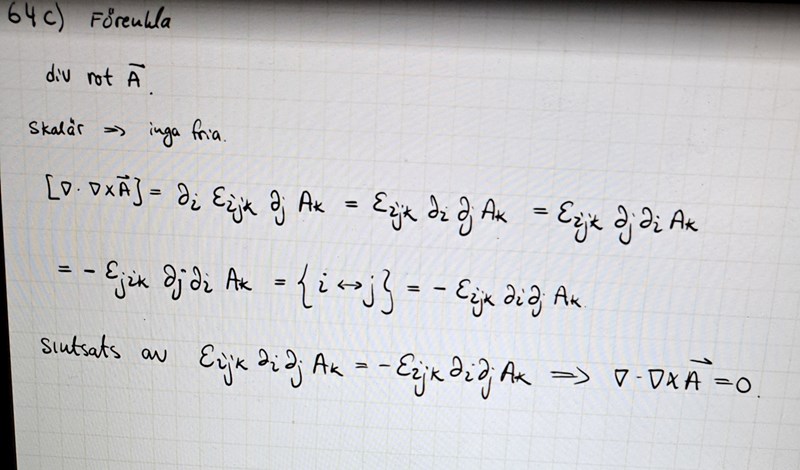 64c) Förenkla
div rot A⃗.
Skalär => inga fria.
[∇·∇×A⃗] = ∂i εijk ∂j Ak = εijk ∂i ∂j Ak = εijk ∂j ∂i Ak
= - εjik ∂j ∂i Ak = {i ↔ j} = - εijk ∂i ∂j Ak
Slutsats av εijk ∂i ∂j Ak = - εijk ∂i ∂j Ak => ∇·∇×A⃗ = 0.